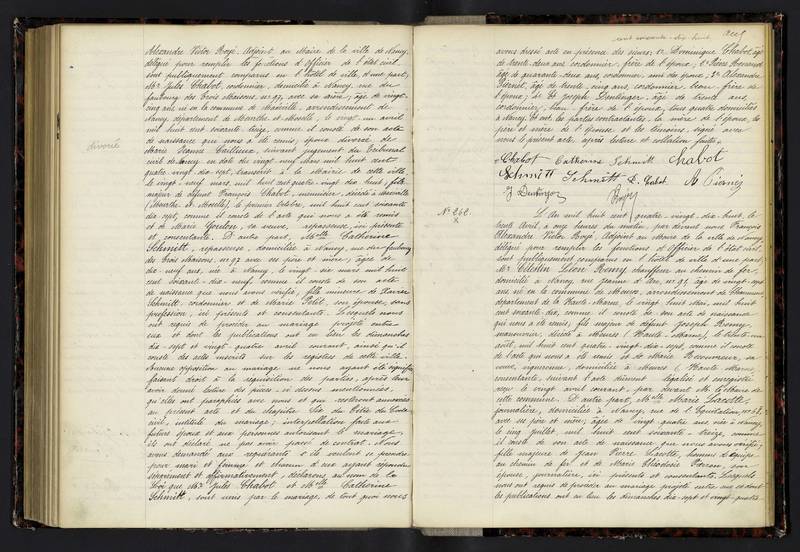 Alexandre Victor Royé, Adjoint au Maire de la ville de Nancy,
délégué pour remplir les fonctions d'Officier de l'état civil
sont publiquement comparus en l'hôtel de ville, d'une part,
Mr Jules Chabot, cordonnier, domicilié à Nancy, rue du
faubourg des trois Maisons, no 97, avec sa mère; âgé de vingt-
cinq ans, né en la commune de Maxéville, arrondissement de
Nancy, département de Meurthe et Moselle, le vingt un avril
mil huit cent soixante treize, comme il conste de son acte
de naissance que nous a été remis, époux divorcé de
divorcé
Marie Jeanne suivant jugement du tribunal
civil de Nancy en date du vingt neuf Mars mil huit cent
quatre vingt dix sept, transcrit à la Mairie de cette ville
le vingt neuf mars mil huit cent quatre vingt dix huit, fils
majeur de défunt François Chabot, décédé à Maxéville
(Meurthe et Moselle), le premier Octobre, mil huit cent soixante
dix sept, comme il conste de l'acte qui nous a été remis
et de Marie sa veuve, repasseuse, ici présente
et consentante. D'autre part, Melle Catherine
Schmitt, repasseuse, domiciliée à Nancy, rue du faubourg
des trois Maisons, no 97 avec ses père et mère; âgée de
dix-neuf ans, née à Nancy, le vingt-dix mars mil huit
cent soixante-dix-neuf, comme il conste de son acte
de naissance que nous avons vérifié, fille mineure de Xavier
Schmitt, cordonnier et de Marie Petit, son épouse, sans
profession, ici présents et consentants. Lesquels nous
ont requis de procéder au mariage projeté entre
eux et dont les publications ont eu lieu les dimanches
dix-sept et vingt-quatre avril courant, ainsi qu'il
conste des actes inscrits sur les registres de cette ville.
Aucune opposition au mariage ne nous ayant été signifiée
faisant droit à la réquisition des parties, après leur
avoir donné lecture des pièces ci-dessus mentionnées
qu'elles ont paraphées avec nous et qui resteront annexées
au présent acte et du chapitre Six du Titre du Code
civil, intitulé du mariage; interpellation faite aux
futurs époux et aux personnes autorisant le mariage,
ils ont déclaré ne pas avoir passé de contrat. Nous
avons demandé aux requérants s'ils veulent se prendre
pour mari et femme et chacun d'eux ayant répondu
séparément et affirmativement déclarons au nom de la
Loi que Mr Jules Chabot et Melle Catherine
Schmitt, sont unis par le mariage, de tout quoi nous
cent soixante-dix-huit
avons dressé acte en présence des sieurs: 1o Dominique Chabot, âgé
de trente-deux ans, cordonnier, frère de l'époux; 2o Pierre
âgé de quarante-deux ans, cordonnier, ami des époux; 3o Alexandre
Pierné, âgé de trente-cinq ans, cordonnier, beau-frère de
l'époux; 4o et Joseph Dentinger, âgé de trente ans
cordonnier, beau-frère de l'époux, tous quatre domiciliés
à Nancy. Et ont les parties contractantes, la mère de l'époux, les
père et mère de l'épouse et les témoins, signé avec
nous le présent acte, après lecture et collation faites.
Chabot Catherine Schmitt Chabot
Schmitt Schmitt D. Chabot A Pierné
J Dentinger Royé
No 262.
X
L'An mil huit cent quatre-vingt-dix-huit, le
trente Avril, à onze heures du matin, par devant nous François
Alexandre Victor Royé, Adjoint au Maire de la ville de Nancy,
délégué pour remplir les fonctions d'Officier de l'état civil
sont publiquement comparus en l'hôtel de ville d'une part,
Mr Célestin Léon Remy, chauffeur au chemin de fer,
domicilié à Nancy, rue Jeanne d'Arc, no 97, âgé de vingt-sept
ans, né en la commune de Meures, arrondissement de Chaumont,
département de la Haute-Marne, le vingt huit Mai, mil huit
cent soixante-dix, comme il conste de son acte de naissance
qui nous a été remis, fils majeur de défunt Joseph Remy,
manouvrier, décédé à Meures (Haute-Marne),
août, mil huit cent quatre-vingt-dix-sept, comme il conste
de l'acte qui nous a été remis et de Marie sa
veuve, vigneronne, domiciliée à Meures (Haute Marne),
consentante, suivant l'acte dûment légalisé et enregistré
reçu le vingt avril courant, par devant Mr le Maire de
cette commune. D'autre part, Melle Marie Lacotte,
journalière, domiciliée à Nancy, rue de l'Equitation, no 58,
avec ses père et mère; âgée de vingt-quatre ans, née à Nancy,
le cinq juillet, mil huit cent soixante-treize, comme
il conste de son acte de naissance que nous avons vérifié;
fille majeure de Jean Pierre Lacotte, homme d'équipe
au chemin de fer et de Marie Théodosie son
épouse, journalière, ici présents et consentants. Lesquels
nous ont requis de procéder au mariage projeté entre eux et dont
les publications ont eu lieu les dimanches dix-sept et vingt-quatre